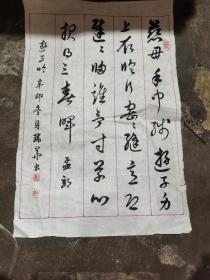 慈母手中线遊子身
上衣临行密密缝意恐
遲遲归谁言寸草心
报得三春暉 孟郊
遊子吟 辛卯冬月 瑞书